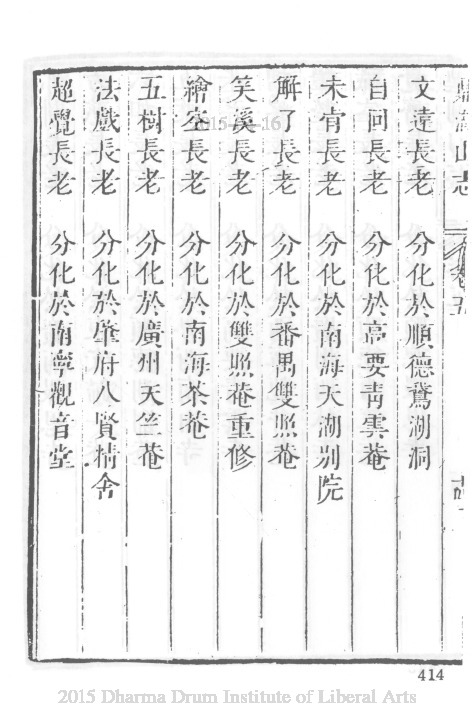 鼎湖山志
卷五
文達長老　分化於順德鵞湖洞
自回長老　分化於高要青雲菴
未肯長老　分化於南海天湖別院
解了長老　分化於番禺雙照菴
笑溪長老　分化於雙照菴重修
繪空長老　分化於南海茶菴
五樹長老　分化於廣州天竺菴
法戲長老　分化於肇府八賢精舍
超覺長老　分化於南寧觀音堂
414
2015 Dharma Drum Institute of Liberal Arts